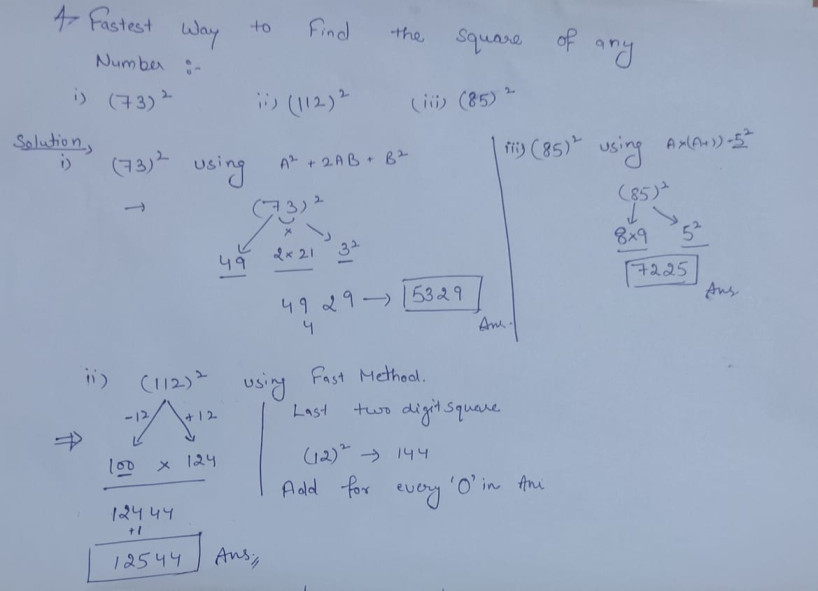 4 Fastest Way to Find the square of any
Number :-
i) (73)² ii) (112)² (iii) (85)²
Solution,
i) (73)² using A² + 2AB + B²
→ (73)²
×
49 2×21 3²
49 29 → 5329
4
Ans.
iii) (85)² using A×(A+1)-5²
(85)²
8×9 5²
7225
Ans
ii) (112)² using Fast Method.
-12 +12
⇒ 100 × 124
12444
+1
12544 Ans,,
Last two digit square
(12)² → 144
Add for every '0' in Ans